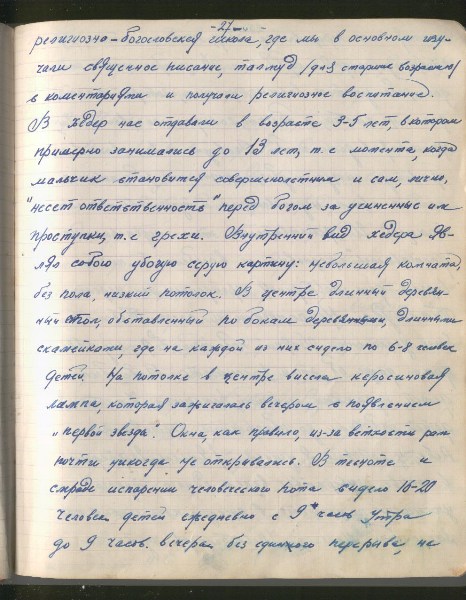 -27-
религиозно-богословская школа, где мы в основном изу-
чали священное писание, талмуд /для старшего возраста/
с коментариями и получали религиозное воспитание.
В хедер нас отдавали в возрасте 3-5 лет, в котором
примерно занимались до 13 лет, т.е момента, когда
мальчик становится совершенолетним и сам, лично,
"несет ответственность" перед богом за учиненные им
проступки, т.е грехи. Внутренний вид хедера яв-
лял собою убогую серую картину: небольшая комната,
без пола, низкий потолок. В центре длинный деревян-
ный стол, обставленный по бокам деревянными, длинными
скамейками, где на каждой из них сидело по 6-8 человек
детей. На потолке в центре висела керосиновая
лампа, которая зажигалась вечером с появлением
"первой звезды". Окна, как правило, из-за ветхости рам
почти никогда не открывались. В тесноте и
смраде испарении человеческого пота сидело 16-20
человек детей ежедневно с 9 часов утра
до 9 часов. вечера без единого перерыва, не